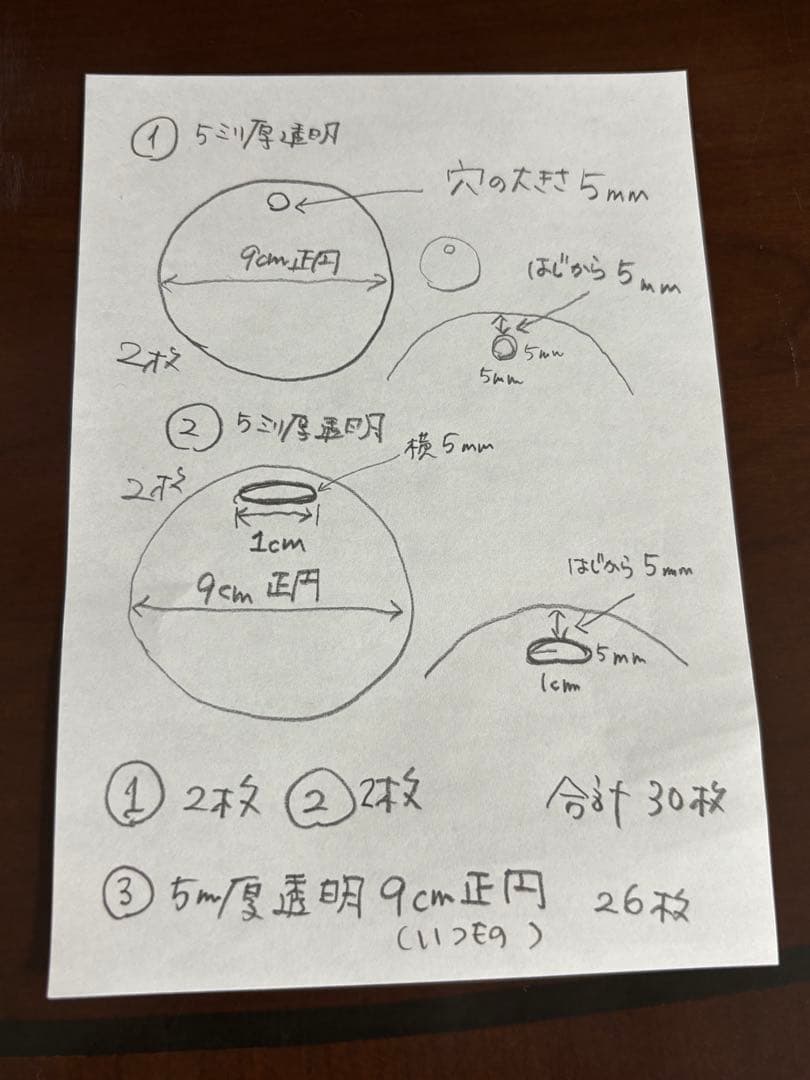 ① 5ミリ厚透明
穴の大きさ 5mm
9cm正円
はじから 5mm
5mm
5mm
2枚
② 5ミリ厚透明
横5mm
2枚
1cm
9cm 正円
はじから 5mm
5mm
1cm
① 2枚 ② 2枚 合計 30枚
③ 5m厚透明 9cm正円 26枚
(いつもの)